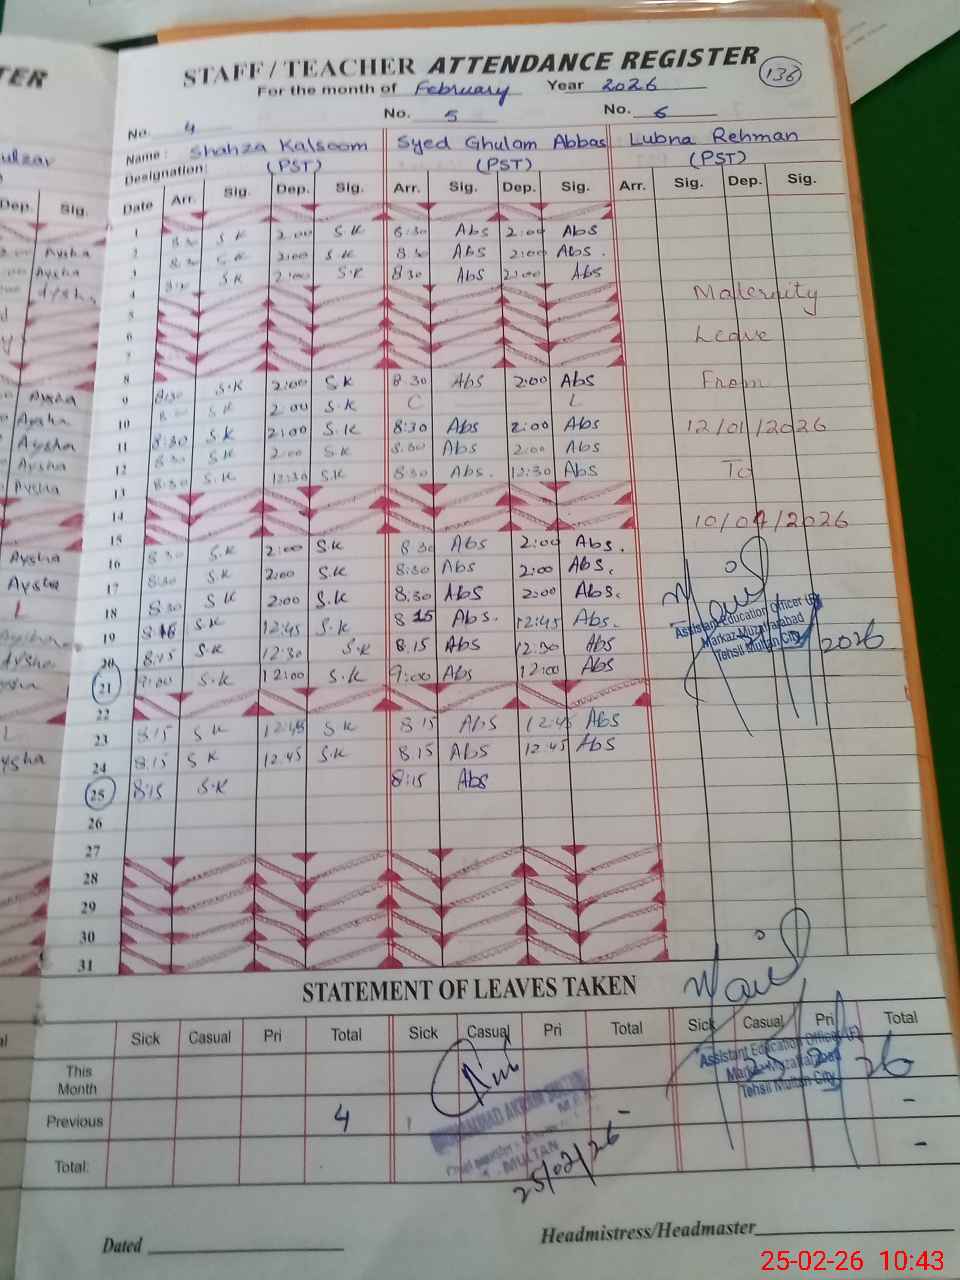 STAFF / TEACHER ATTENDANCE REGISTER
136
For the month of February Year 2026
No. 4 No. 5 No. 6
Name : Shahza Kalsoom Syed Ghulam Abbas Lubna Rehman
Designation: (PST) (PST) (PST)
Date Arr. Sig. Dep. Sig. Arr. Sig. Dep. Sig. Arr. Sig. Dep. Sig.
1
2 8:30 S.K 2:00 S.K 8:30 Abs 2:00 Abs
3 8:30 S.K 2:00 S.K 8:30 Abs 2:00 Abs.
4 S.K 2:00 S.K 830 Abs 2:00 Abs
5
6
7
8
9 8:30 S.K 2:00 S.K 8.30 Abs 2:00 Abs
10 S.K 2:00 S.K C L
11 8:30 S.K 2:00 S.K 8:30 Abs 2:00 Abs
12 8:30 S.K 2:00 S.K 8:30 Abs 2:00 Abs
13 8:30 S.K 12:30 S.K 8:30 Abs. 12:30 Abs
14
15
16 8:30 S.K 2:00 S.K 8:30 Abs 2:00 Abs.
17 8:30 S.K 2:00 S.K 8:30 Abs 2:00 Abs.
18 8:30 S.K 2:00 S.K 8.30 Abs 2:00 Abs.
19 S.K 12:45 S.K 8 15 Abs. 12:45 Abs.
20 8:15 S.K 12:30 S.K 8.15 Abs 12:30 Abs
21 9:00 S.K 12:00 S.K 9:00 Abs 12:00 Abs
22
23 8:15 S.K 12:45 S.K 8.15 Abs 12:45 Abs
24 8:15 S K 12.45 S.K 8.15 Abs 12.45 Abs
25 8:15 S.K 8:15 Abs
26
27
28
29
30
31
Maternity
Leave
From
12/01/2026
To
10/04/2026
Assistant Education Officer (F)
Markaz-Muzaffarabad
Tehsil Multan City
2026
STATEMENT OF LEAVES TAKEN
Sick Casual Pri Total Sick Casual Pri Total Sick Casual Pri Total
This Month
Previous 4 - -
Total: -
Assistant Education Officer (F)
Markaz-Muzaffarabad
Tehsil Multan City
26
MULTAN
25/02/26
Dated Headmistress/Headmaster
25-02-26 10:43
Dep. Sig.
Aysha
Aysha
Aysha
Aysha
Aysha
Aysha
Aysha
Aysha
Aysha
Aysha
L
Aysha
Aysha